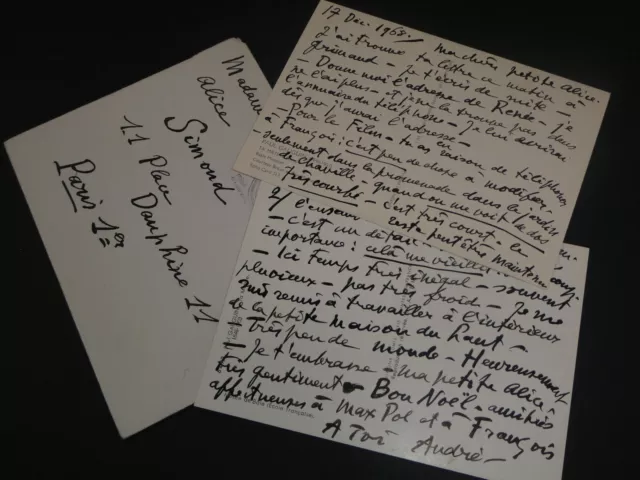 Madame
Alice
Simond
11 Place
Dauphine 11
Paris 1er
17 Déc. 1968. Ma chère petite Alice.
J'ai trouvé ta lettre ce matin à
Grimaud - je t'écris de suite -
- Donne moi l'adresse de Renée - je
ne l'ai plus - et je ne la trouve pas dans
l'annuaire du téléphone - Je lui écrirai
dès que j'aurai l'adresse -
- Pour le Film - tu as raison de téléphoner
à François, c'est peu de chose à modifier -
seulement dans la promenade dans le jardin
de chaville - quand on me voit de dos
très courbé - c'est très court - en
reste peut être maintenu
2/ l'ensemble
- c'est un détail
importance : celà me vieillit
- Ici temps très inégal - souvent
pluvieux - pas très froid - je me
suis remis à travailler à l'intérieur
de la petite maison du haut -
- Très peu de monde - Heureusement
- Je t'embrasse - ma petite Alice
très gentiment - Bon Noël - amitiés
affectueuses à Max Pol et à François
A Toi - André -